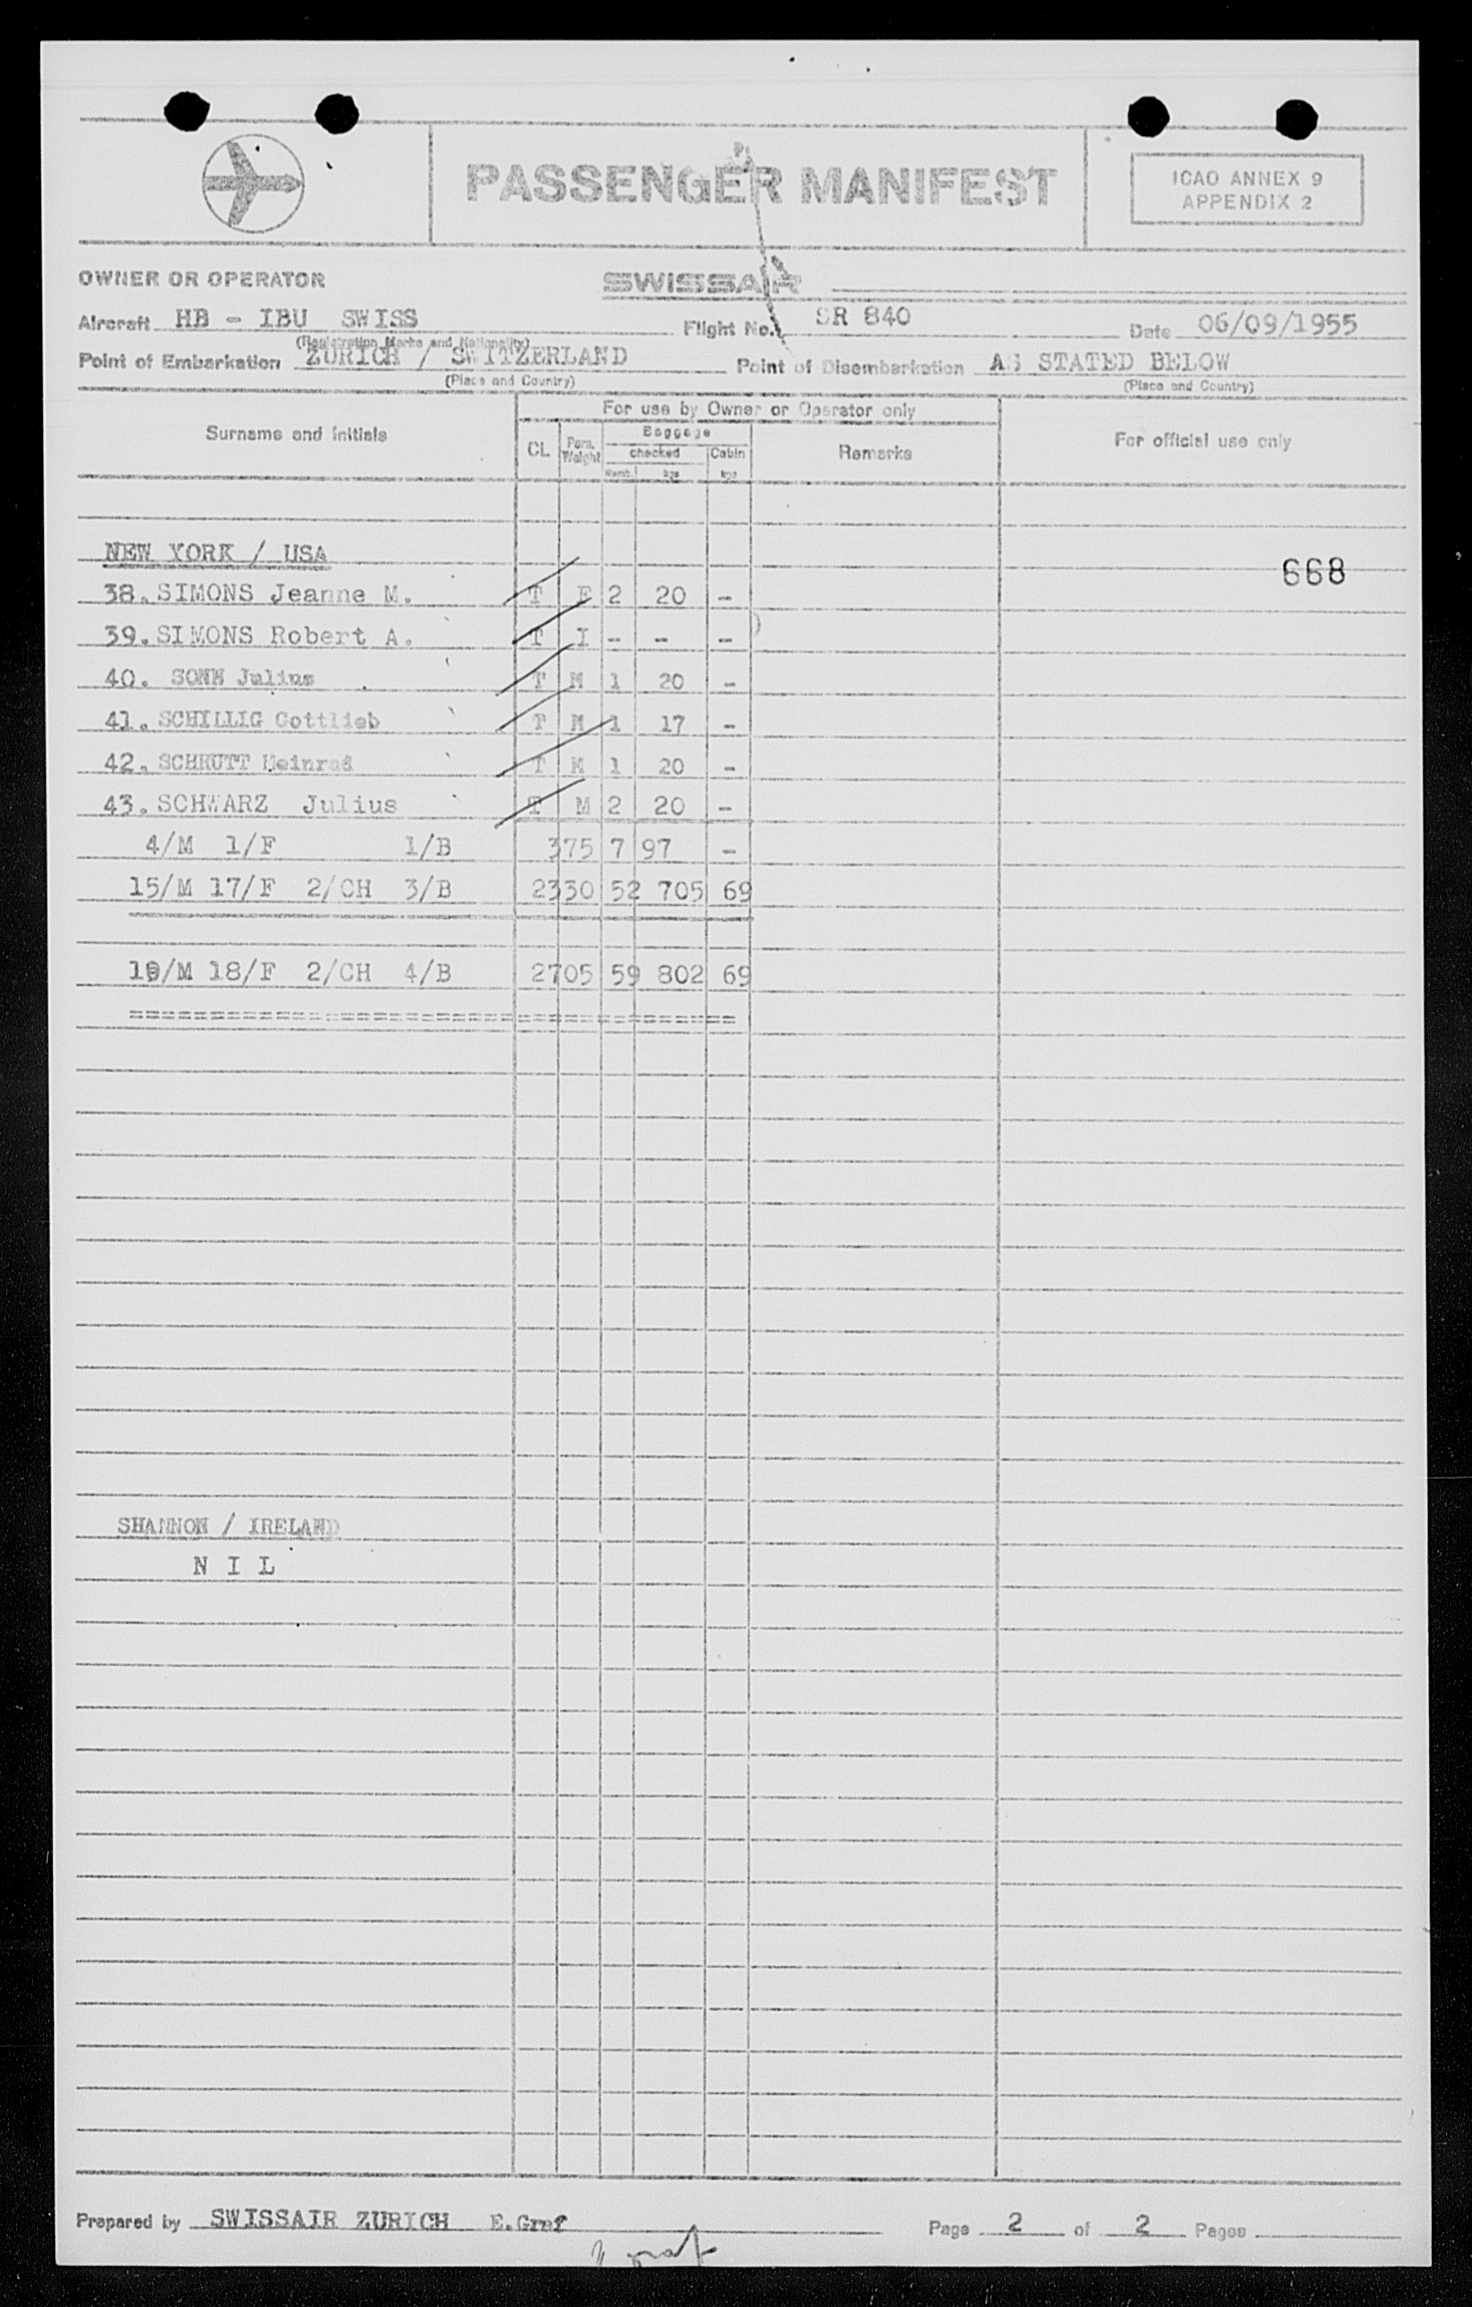 PASSENGER MANIFEST
ICAO ANNEX 9
APPENDIX 2
OWNER OR OPERATOR SWISSAIR
Aircraft HB - IBU SWISS Flight No. SR 840 Date 06/09/1955
(Registration Marks and Nationality)
Point of Embarkation ZURICH / SWITZERLAND Point of Disembarkation AS STATED BELOW
(Place and Country) (Place and Country)
For use by Owner or Operator only
Surname and initials CL Pers. Weight Baggage Remarks For official use only
checked Cabin
Numb. kgs kgs
NEW YORK / USA
668
38. SIMONS Jeanne M. T F 2 20 -
39. SIMONS Robert A. T I - - -
40. Julius T M 1 20 -
41. SCHILLIG Gottlieb T M 1 17 -
42. SCHRUTT Meinrad T M 1 20 -
43. SCHWARZ Julius T M 2 20 -
4/M 1/F 1/B 375 7 97 -
15/M 17/F 2/CH 3/B 2330 52 705 69
19/M 18/F 2/CH 4/B 2705 59 802 69
======================================
SHANNON / IRELAND
N I L
Prepared by SWISSAIR ZURICH E.Graf
Page 2 of 2 Pages